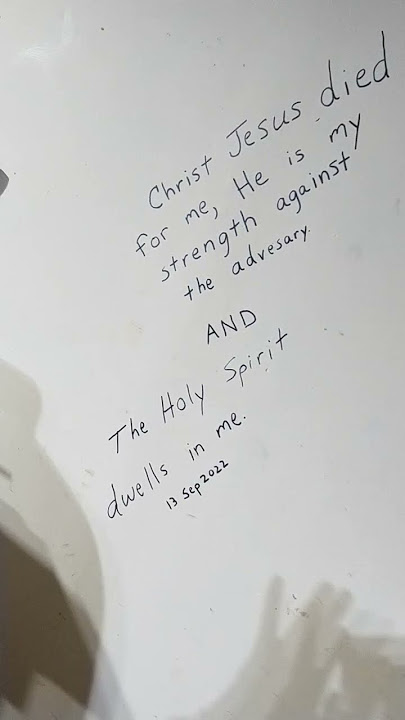 Christ Jesus died
for me, He is my
strength against
the advesary.
AND
The Holy Spirit
dwells in me.
13 Sep 2022